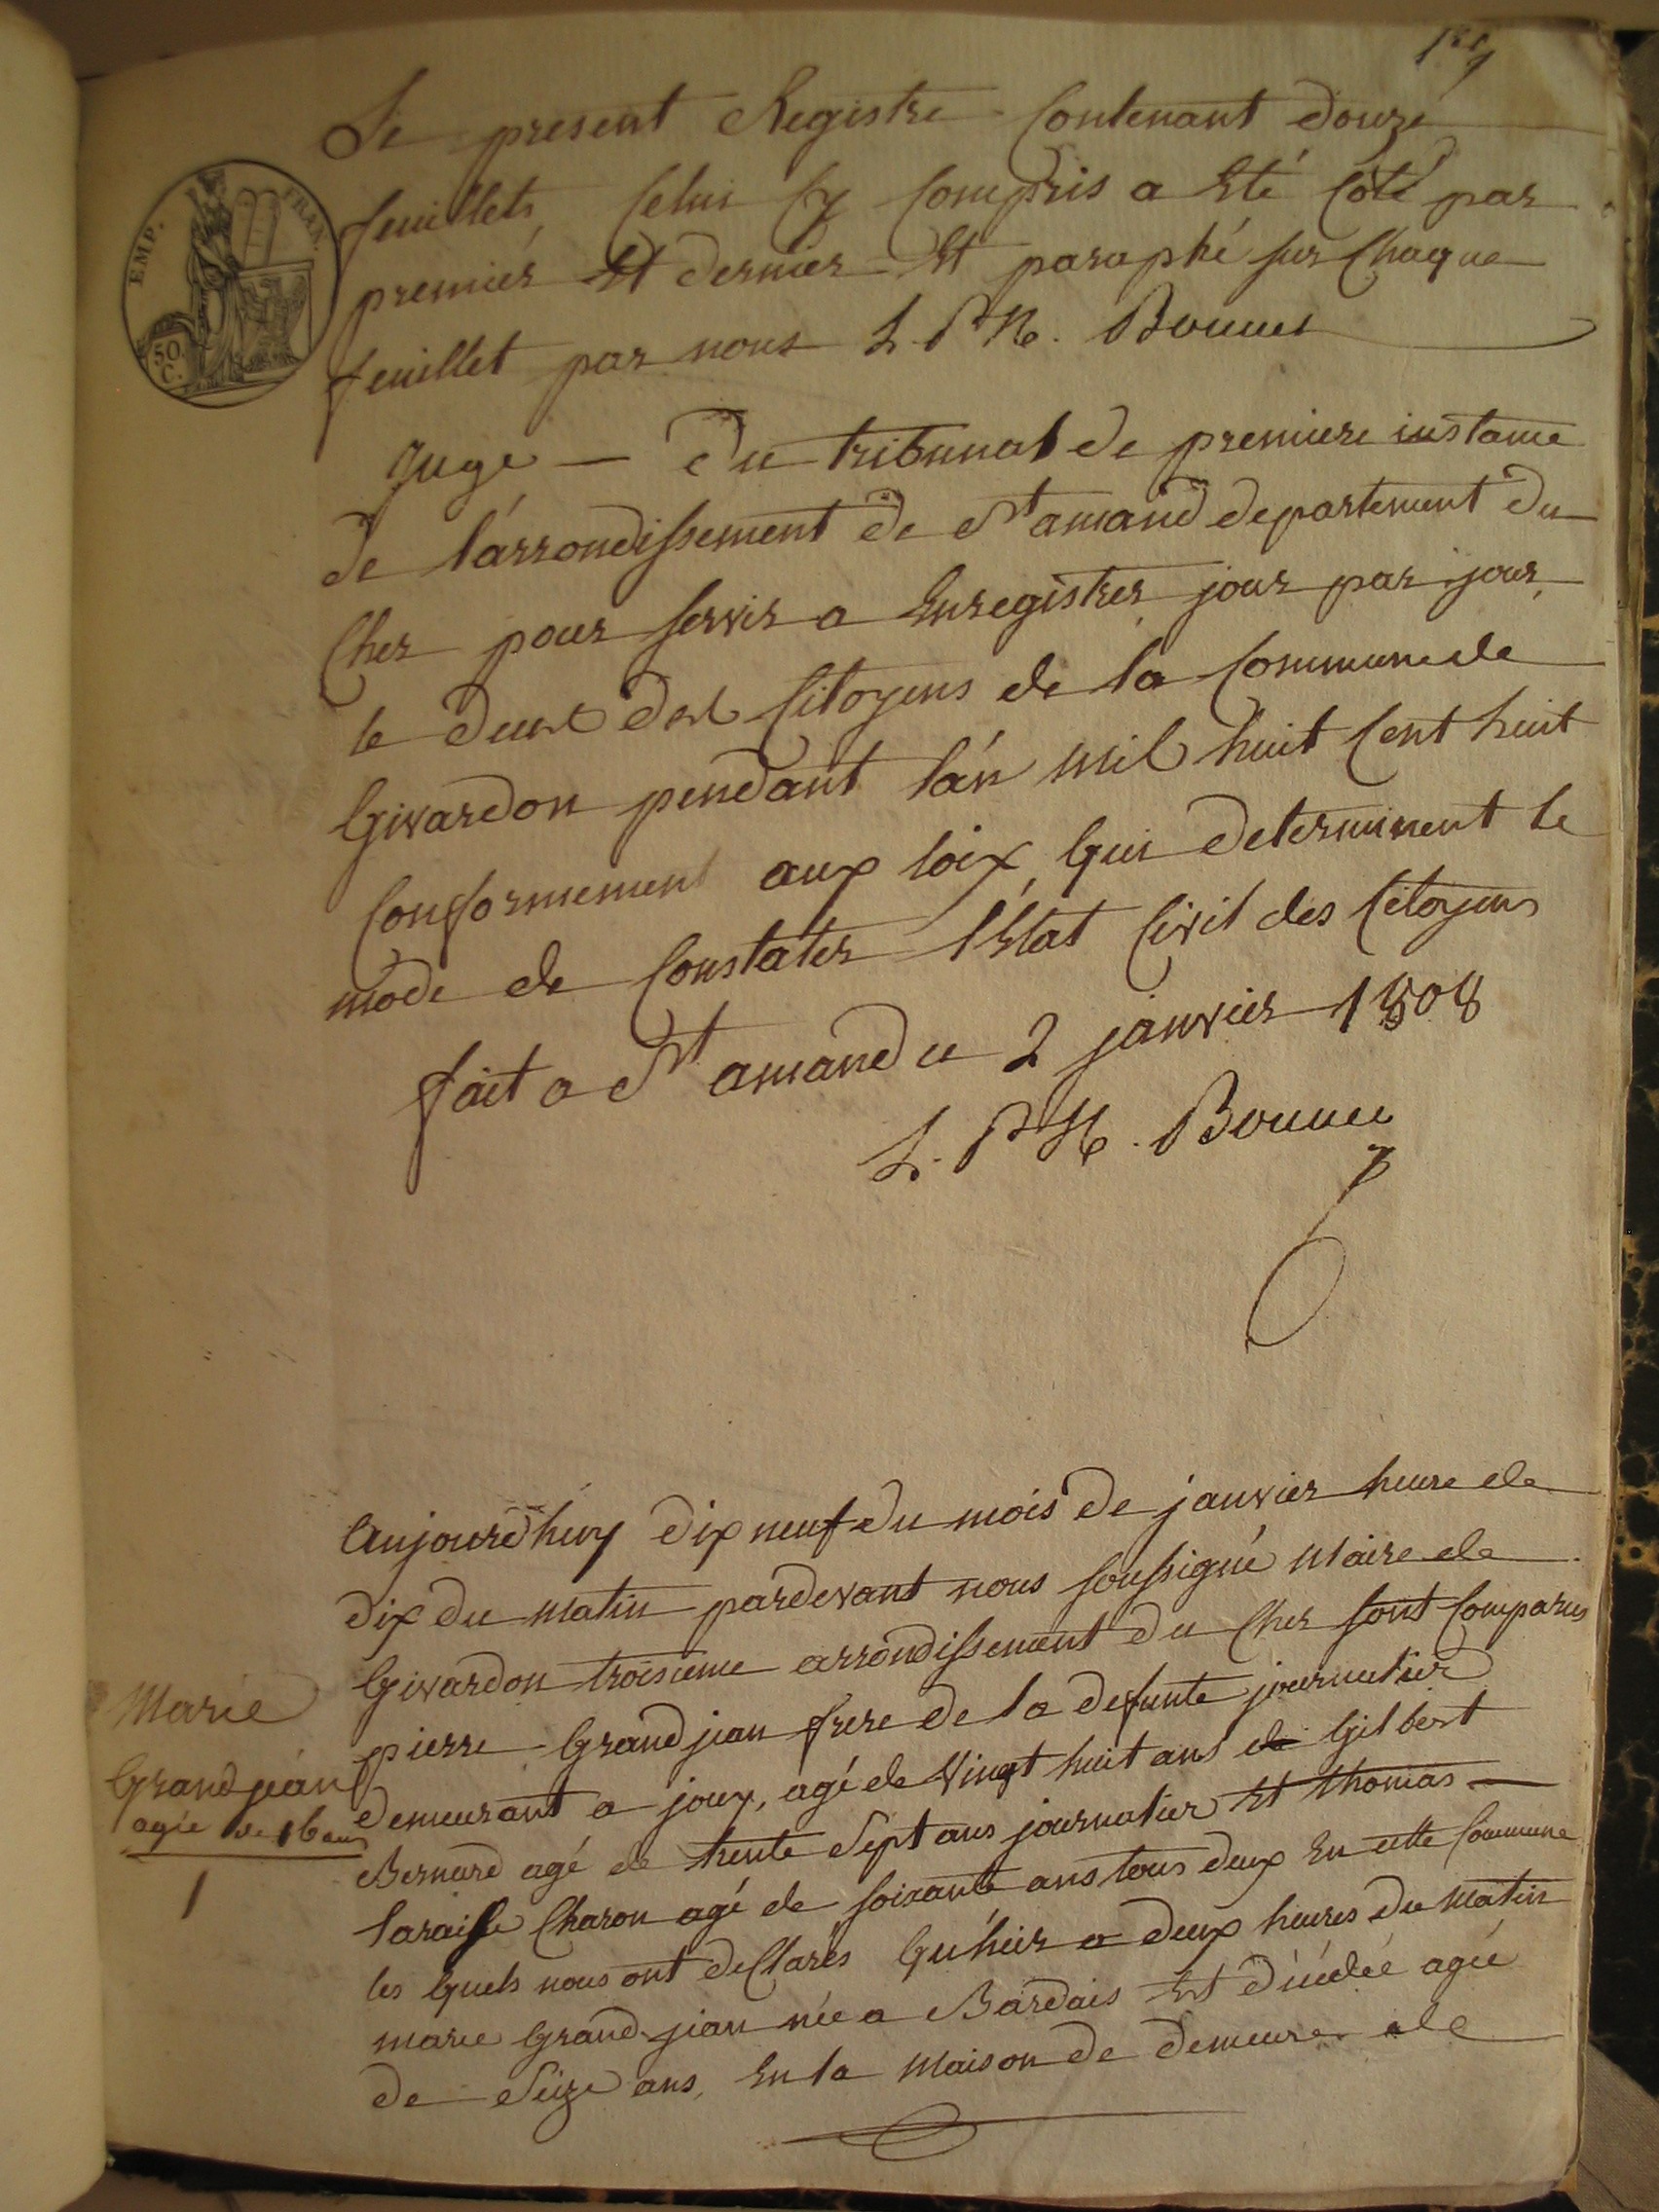 Le present Registre Contenant douze
feuillets, Celui Cy Compris a Eté Coté par
premiér Et dernier Et paraphé sur Chaque
feuillet par nous L. P. N. Bonnet
EMP. FRAN.
50. C.
Juge — du tribunal de premiere instance
de l'arrondissement de St amand departement du
Cher pour servir a Enregistrer jour par jour,
le deces des Citoyens de la Commune de
Givardon pendant l'an mil huit Cent huit
Conformement aux loix, Qui determinent le
mode de Constater l'Etat Civil des Citoyens
fait a St amand ce 2 janvier 1808
L. P. N. Bonnet
Aujourd'huy dix neuf du mois de janvier heure de
dix du matin pardevant nous soussigné Maire de
Givardon troisieme arrondissement du Cher sont Comparus
pierre Grandjean frere de la defunte journalier
demeurant a jouy, agé de Vingt huit ans de Gilbert
Bernard agé de trente Sept ans journalier Et thomas
Charon agé de soixante ans tous deux En cette Commune
les Quels nous ont declarés Qu'hier a deux heures du Matin
marie Grandjean née a Bardais Est décédée agée
de Seize ans, En la Maison de demeure de
Marie
Grandjean
agée de 16 ans
1